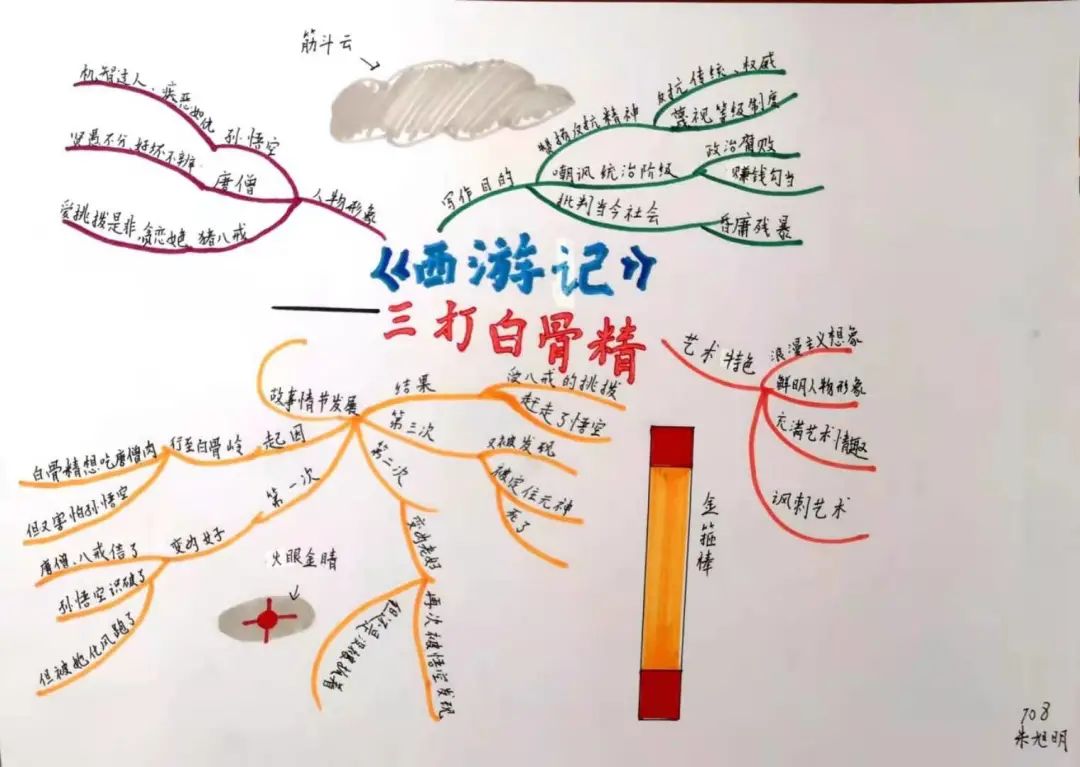 筋斗云
机智过人、疾恶如仇
孙悟空
贤愚不分、好坏不辨
唐僧
爱挑拨是非、贪恋女色
猪八戒
人物形象
写作目的
赞扬反抗精神
反抗传统、权威
蔑视等级制度
嘲讽统治阶级
政治腐败
赚钱勾当
批判当今社会
昏庸残暴
《西游记》
三打白骨精
艺术特色
浪漫主义想象
鲜明人物形象
充满艺术情趣
讽刺艺术
故事情节发展
结果
受八戒的挑拨
赶走了悟空
第三次
又被发现
被定住元神
死了
第二次
变为老妇
再次被悟空发现
起因
行至白骨岭
白骨精想吃唐僧肉
但又害怕孙悟空
第一次
变为女子
唐僧、八戒信了
孙悟空识破了
但被她化风跑了
火眼金睛
金箍棒
708
朱旭明